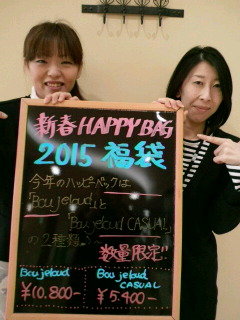 新春 HAPPY BAG
2015 福袋
今年のハッピーバックは
「Boujeloud」と
「Boujeloud CASUAL」
の2種類♪
数量限定!!
Boujeloud
¥10.800-
Boujeloud
CASUAL
¥5.400-